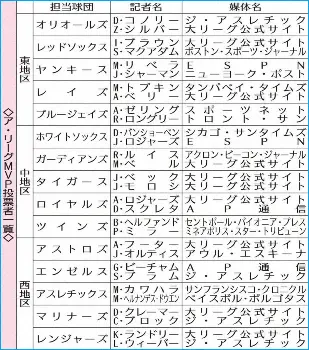 ◇ア・リーグMVP投票者一覧◇
担当球団 記者名 媒体名
東地区
オリオールズ D・コノリー ジ・アスレチック
Z・シルバー 大リーグ公式サイト
レッドソックス I・ブラウン 大リーグ公式サイト
S・マクアダム ボストン・スポーツ・ジャーナル
ヤンキース M・リベラ ESPN
J・シャーマン ニューヨーク・ポスト
レイズ M・トプキン タンパベイ・タイムズ
A・ベリー 大リーグ公式サイト
ブルージェイズ A・ゼリング スポーツネット
R・ロングリー トロント・サン
中地区
ホワイトソックス D・バンショーベン シカゴ・サンタイムズ
J・ロジャーズ ESPN
ガーディアンズ R・ルイス アクロン・ビーコン・ジャーナル
M・ベル 大リーグ公式サイト
タイガース J・ベック 大リーグ公式サイト
J・モロシ 大リーグ公式サイト
ロイヤルズ A・ロジャーズ 大リーグ公式サイト
D・スクレタ AP通信
ツインズ B・ヘルファンド セントポール・パイオニア・プレス
P・ミラー ミネアポリス・スター・トリビューン
西地区
アストロズ A・フーター 大リーグ公式サイト
J・オルティス アウル・エスキーナ
エンゼルス G・ビーチャム AP通信
S・ブラム ジ・アスレチック
アスレチックス M・カワハラ サンフランシスコ・クロニクル
M・ヘルナンデス・ドウエン ベイスボル・ポルゴタス
マリナーズ D・クレーマー 大リーグ公式サイト
C・ブロック ジ・アスレチック
レンジャーズ K・ランドリー 大リーグ公式サイト
L・ウィーバー ジ・アスレチック